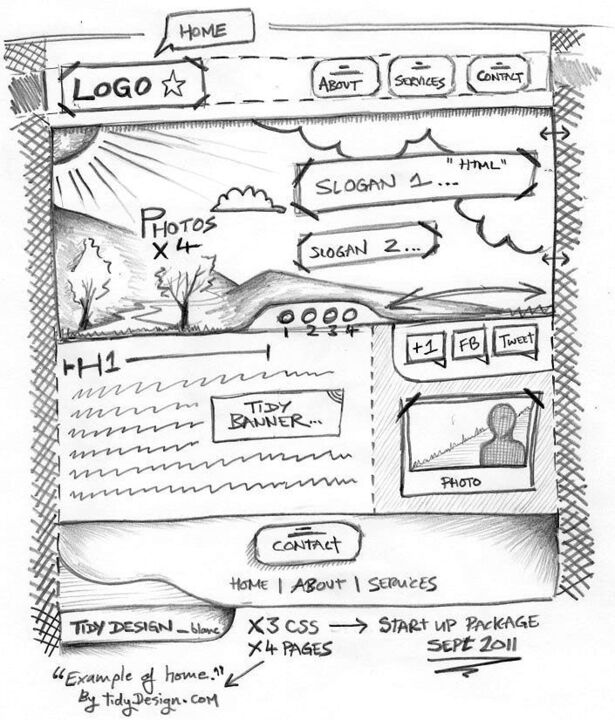 HOME
LOGO
ABOUT
SERVICES
CONTACT
"HTML"
SLOGAN 1...
PHOTOS
X 4
SLOGAN 2...
1 2 3 4
+1
FB
TWEET
H1
TIDY
BANNER...
PHOTO
CONTACT
HOME | ABOUT | SERVICES
TIDY DESIGN_blanc
X3 CSS → START UP PACKAGE
X4 PAGES
SEPT 2011
"Example of home."
By TidyDesign.com